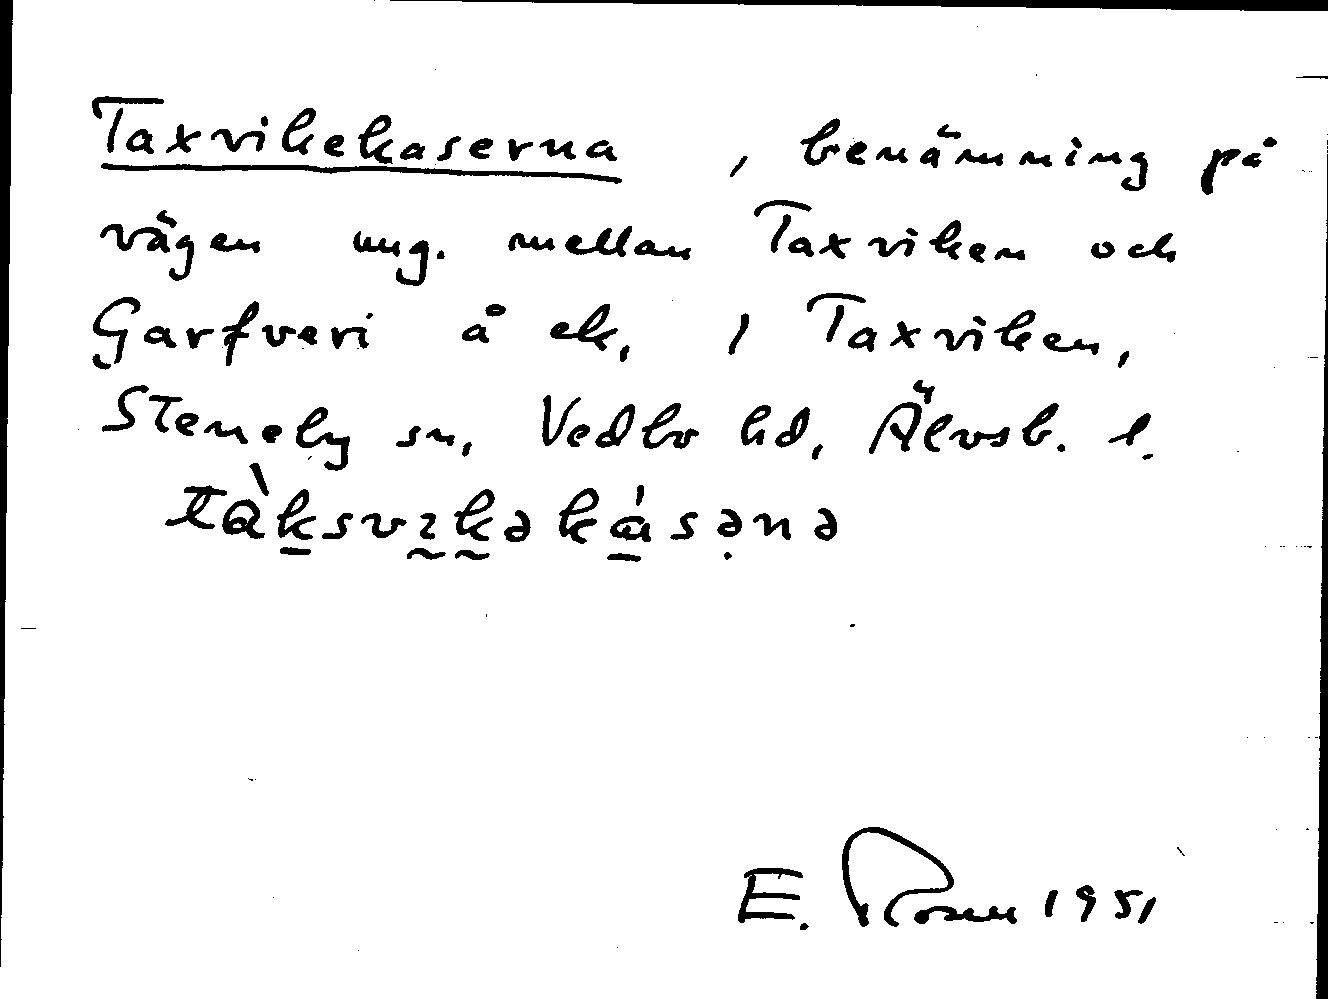 Taxvikekaserna, benämning på
vägen ung. mellan Taxviken och
Garfveri å ek, 1 Taxviken,
Steneby sn, Vedbo hd, Älvsb. l.
tàksvɪkəkásənə
E. 1951